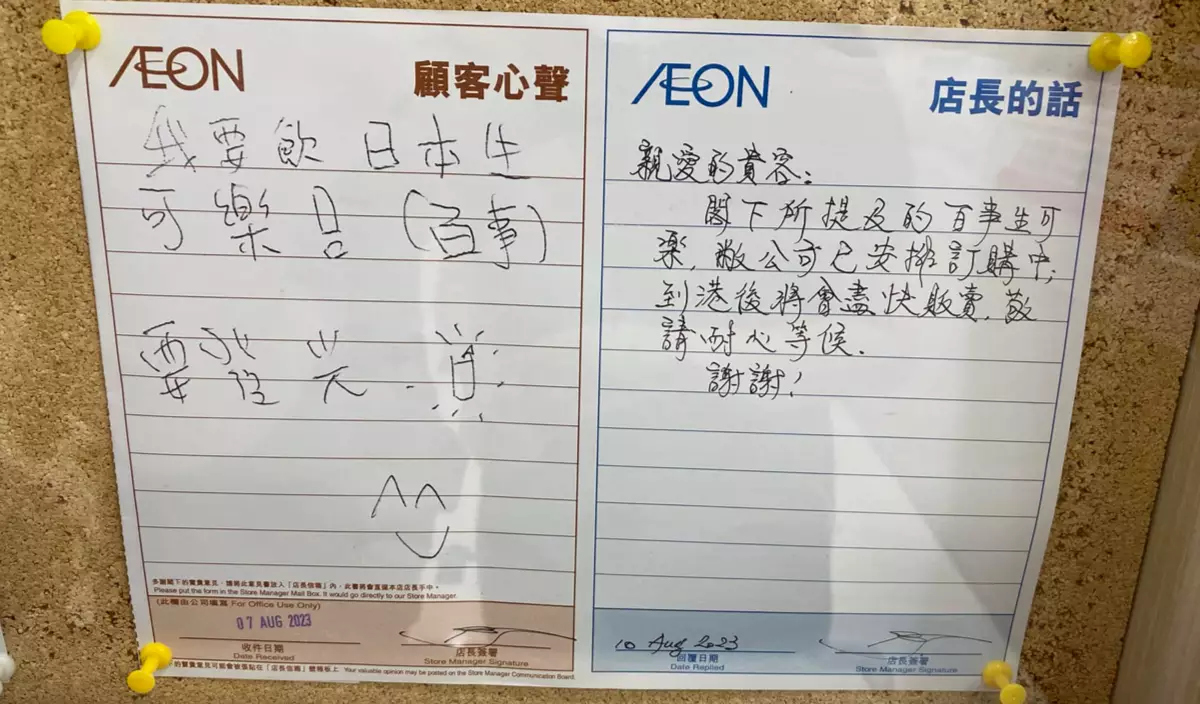 AEON
顧客心聲
我要飲日本生
可樂 (百事)
要發光
多謝閣下的寶貴意見，請將此意見書放入「店長信箱」內，此書將會直達本店店長手中。
Please put the form in the Store Manager Mail Box. It would go directly to our Store Manager.
(此欄由公司填寫 For Office Use Only)
07 AUG 2023
收件日期
Date Received
店長簽署
Store Manager Signature
的寶貴意見可能會被張貼在「店長信箱」壁報板上 Your valuable opinion may be posted on the Store Manager Communication Board.
AEON
店長的話
親愛的貴客：
閣下所提及的百事生可
楽, 敝公司已安排訂購中,
到港後將會盡快販賣, 敬
請耐心等候.
謝謝!
10 Aug 2023
回覆日期
Date Replied
店長簽署
Store Manager Signature